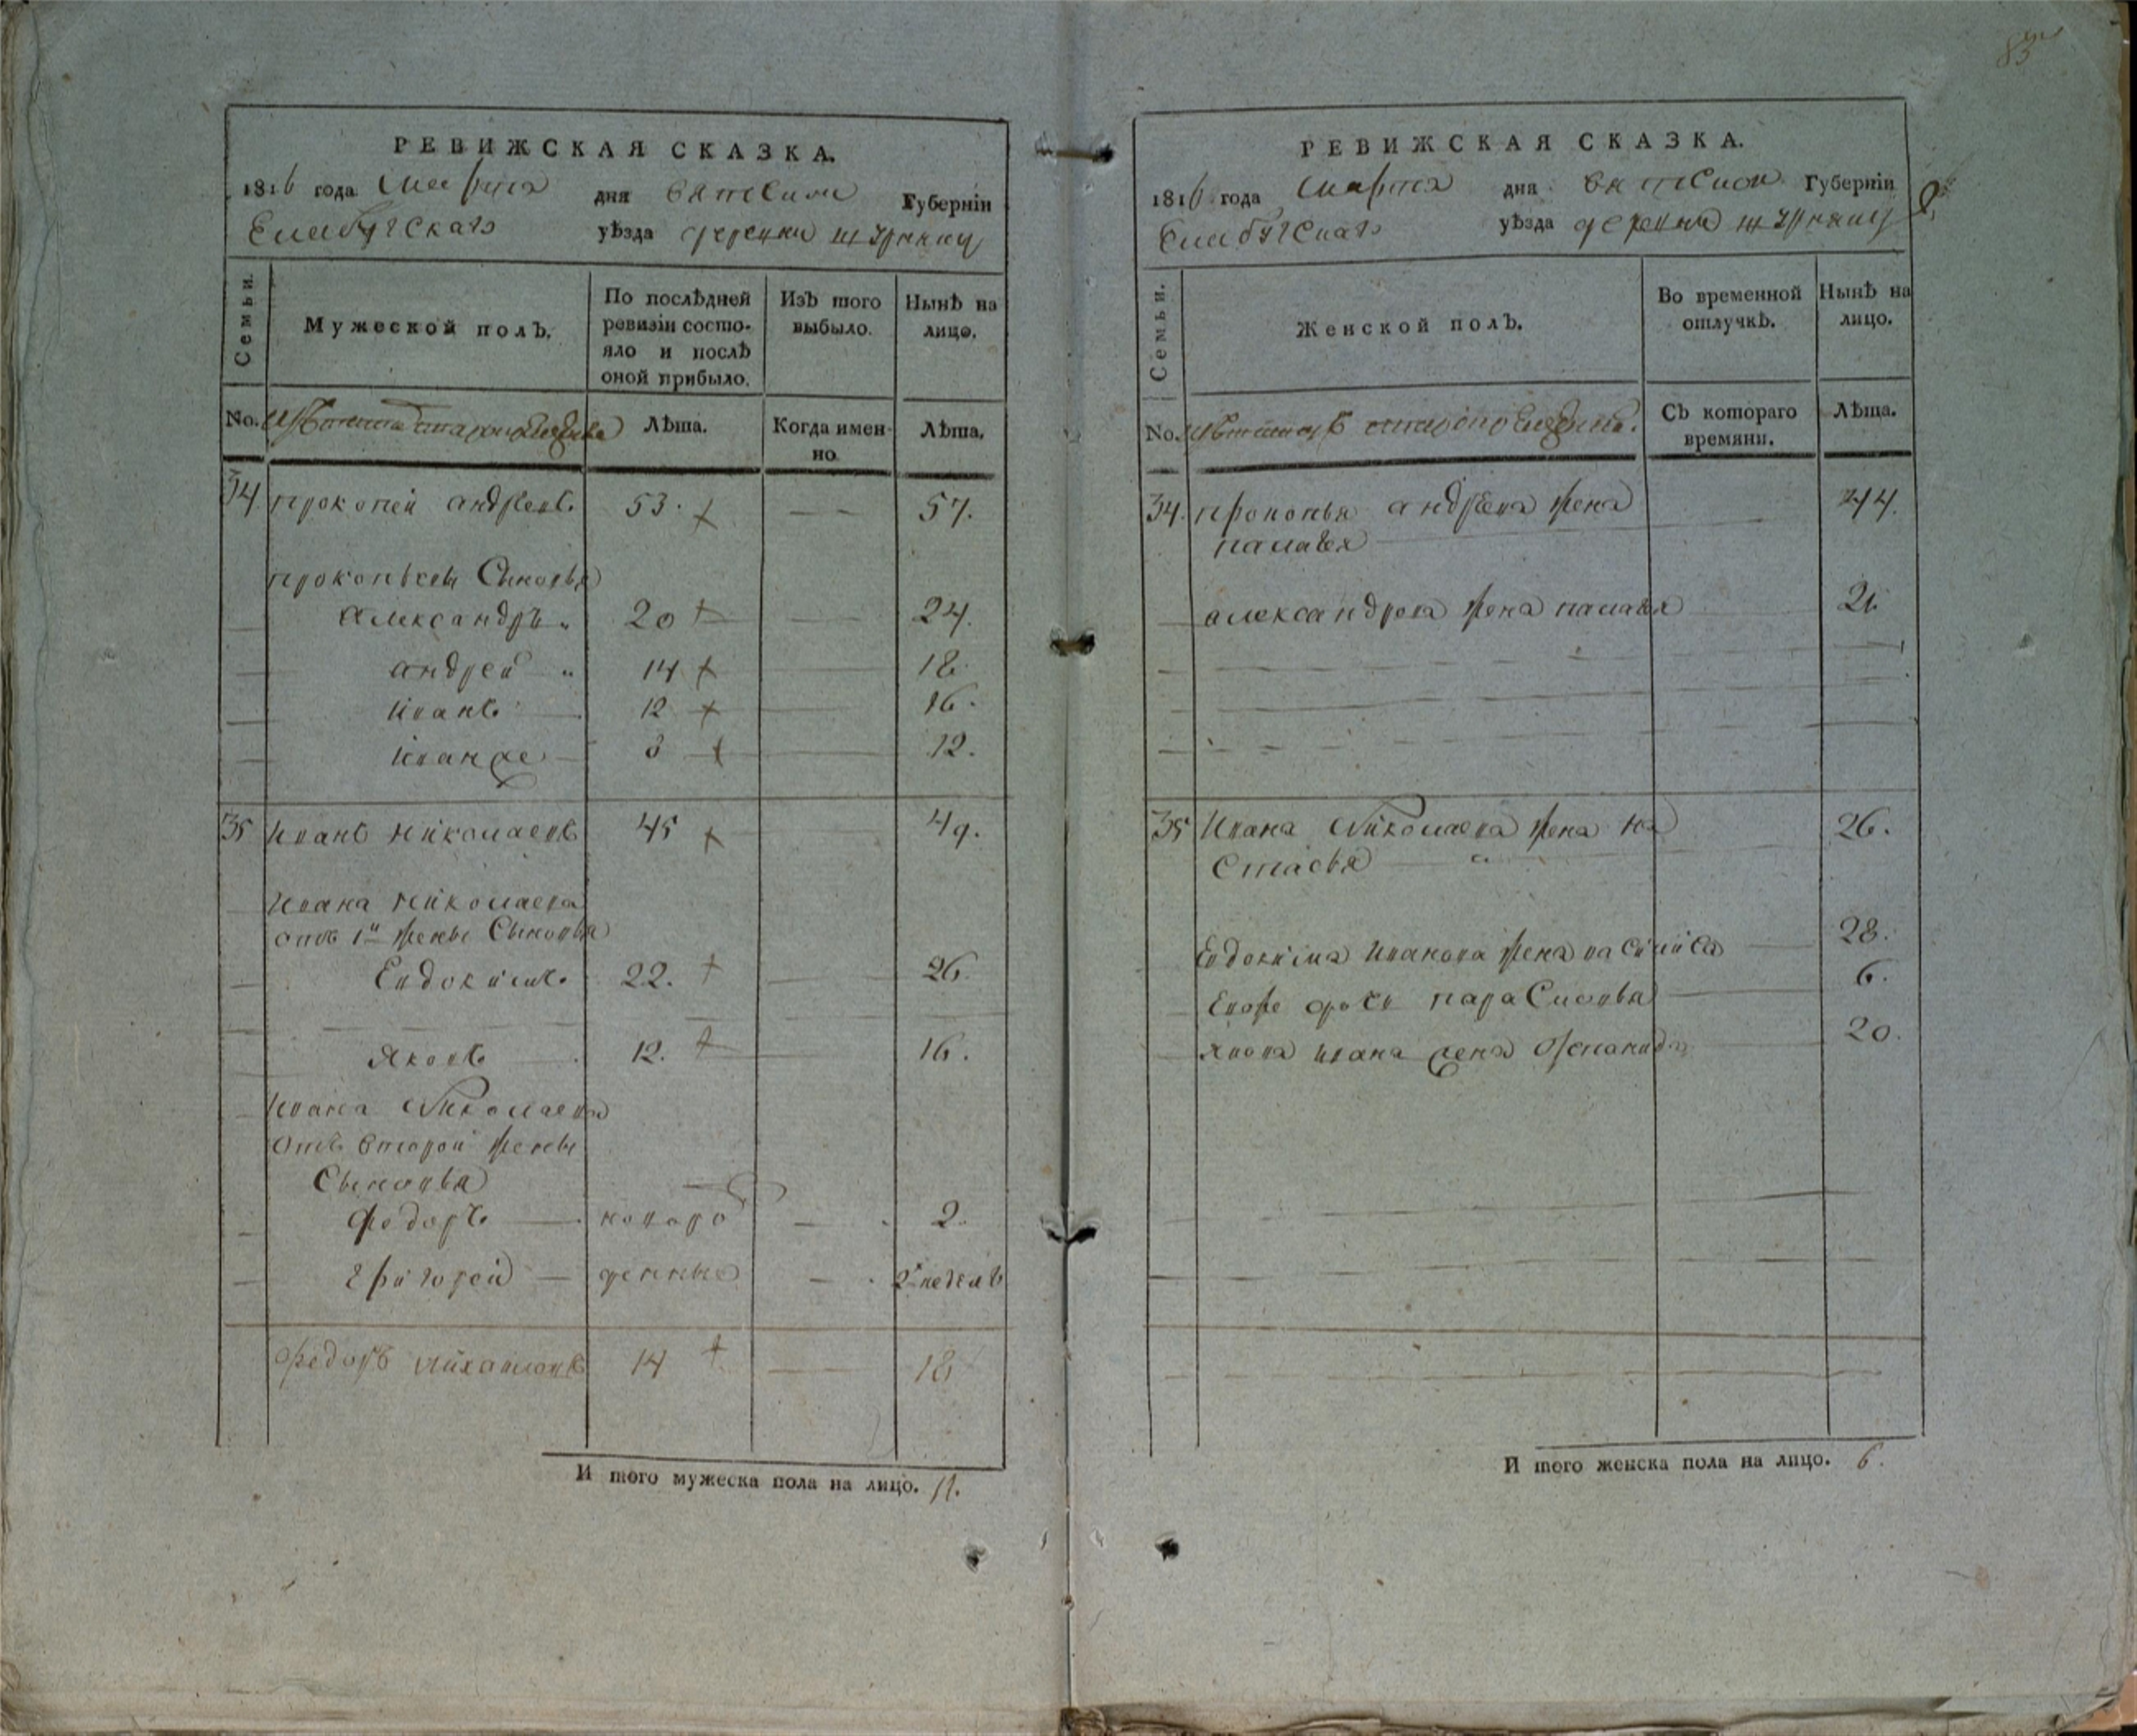 РЕВИЖСКАЯ СКАЗКА.
1816 года Марта дня вятской Губерніи
Елабугского уѣзда деревни
Семьи.
Мужеской полъ.
По послѣдней ревизіи состояло и послѣ оной прибыло.
Изъ того выбыло.
Нынѣ на лицо.
No.
Лѣта.
Когда именно
Лѣта.
34 прокопей андреевъ 53. — — 57.
прокопьевы Сыновья
Александръ 20 — 24.
андрей 14 — 18
иванъ 12 — 16.
иван же 8 — 12.
35 иванъ николаевъ 45 49.
ивана николаева
отъ 1й жены Сыновья
Евдокимъ 22. — 26.
яковъ 12. — 16.
ивана Николаева
отъ второй жены
Сыновья
Федоръ — новоро — 2.
Григорей — жденные — 2 недель
Федоръ михайловъ 14 — 18
И того мужеска пола на лицо. 11.
83
РЕВИЖСКАЯ СКАЗКА.
1816 года Марта дня вятской Губерніи
Елабугского уѣзда деревни
Семьи.
Женской полъ.
Во временной отлучкѣ.
Нынѣ на лицо.
No.
Съ котораго времяни.
Лѣта.
34. прокопья андреева жена 44.
палагея
александрова жена палагея 21.
35 Ивана Николаева жена на 26.
стасья
Евдокима иванова жена василиса 28.
Евоже дочь парасковья 6.
якова ивана жена 20.
И того женска пола на лицо. 6.